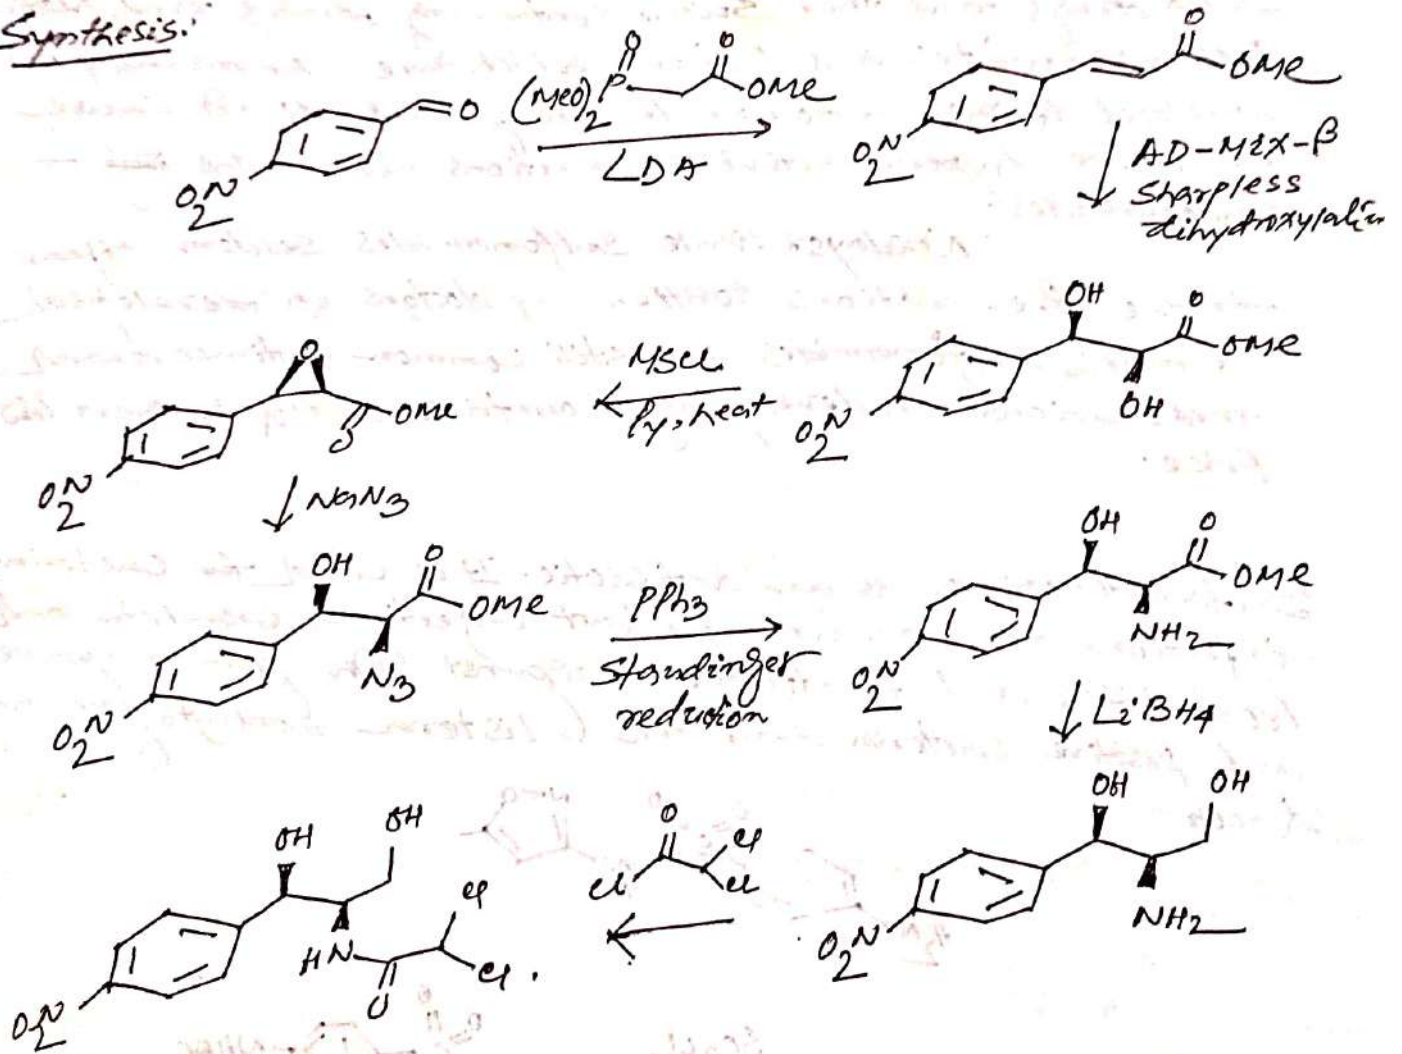 Synthesis:
O₂N
O
(MeO)₂P
O
O
OMe
LDA
O₂N
O
OMe
AD-Mix-β
Sharpless
dihydroxylation
O₂N
OH
OH
O
OMe
MsCl
Py, heat
O₂N
O
O
OMe
NaN3
O₂N
OH
N3
O
OMe
PPh3
Staudinger
reduction
O₂N
OH
NH2
O
OMe
LiBH4
O₂N
OH
OH
NH2
O
Cl
Cl
Cl
O₂N
OH
OH
HN
O
Cl
Cl.